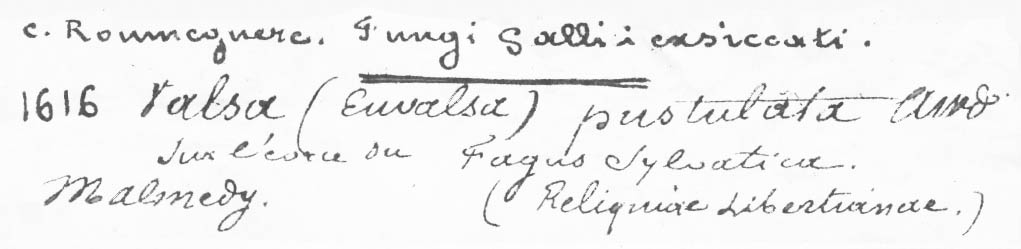 C. Roumeguere. Fungi Gallii exsiccati.
1616 Valsa (Euvalsa) pustulata Awd
Sur l'écorce du Fagus Sylvatica.
Malmedy. (Reliquiae Libertianae.)